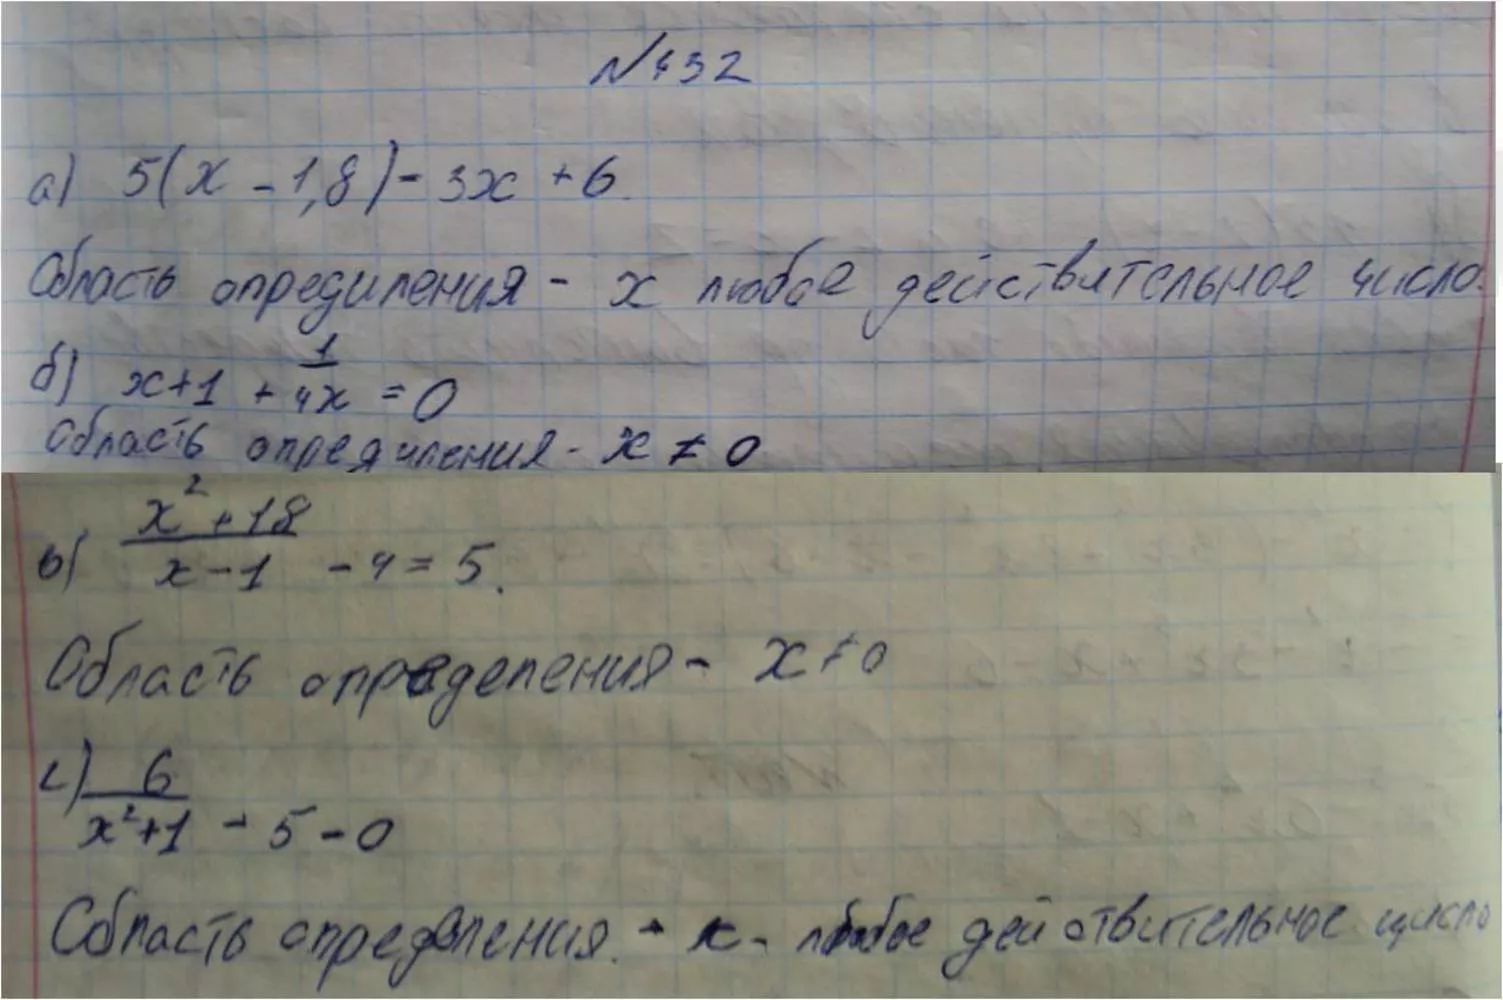 №432
а) 5(x - 1,8) - 3x + 6.
Область опредиления - x любое действительное число.
б) x+1 + 1/4x = 0
Область опредиления - x ≠ 0
в) x²+18/x-1 - 4 = 5.
Область определения - x ≠ 0
г) 6/x²+1 - 5 - 0
Область определения. - x - любое действительное число